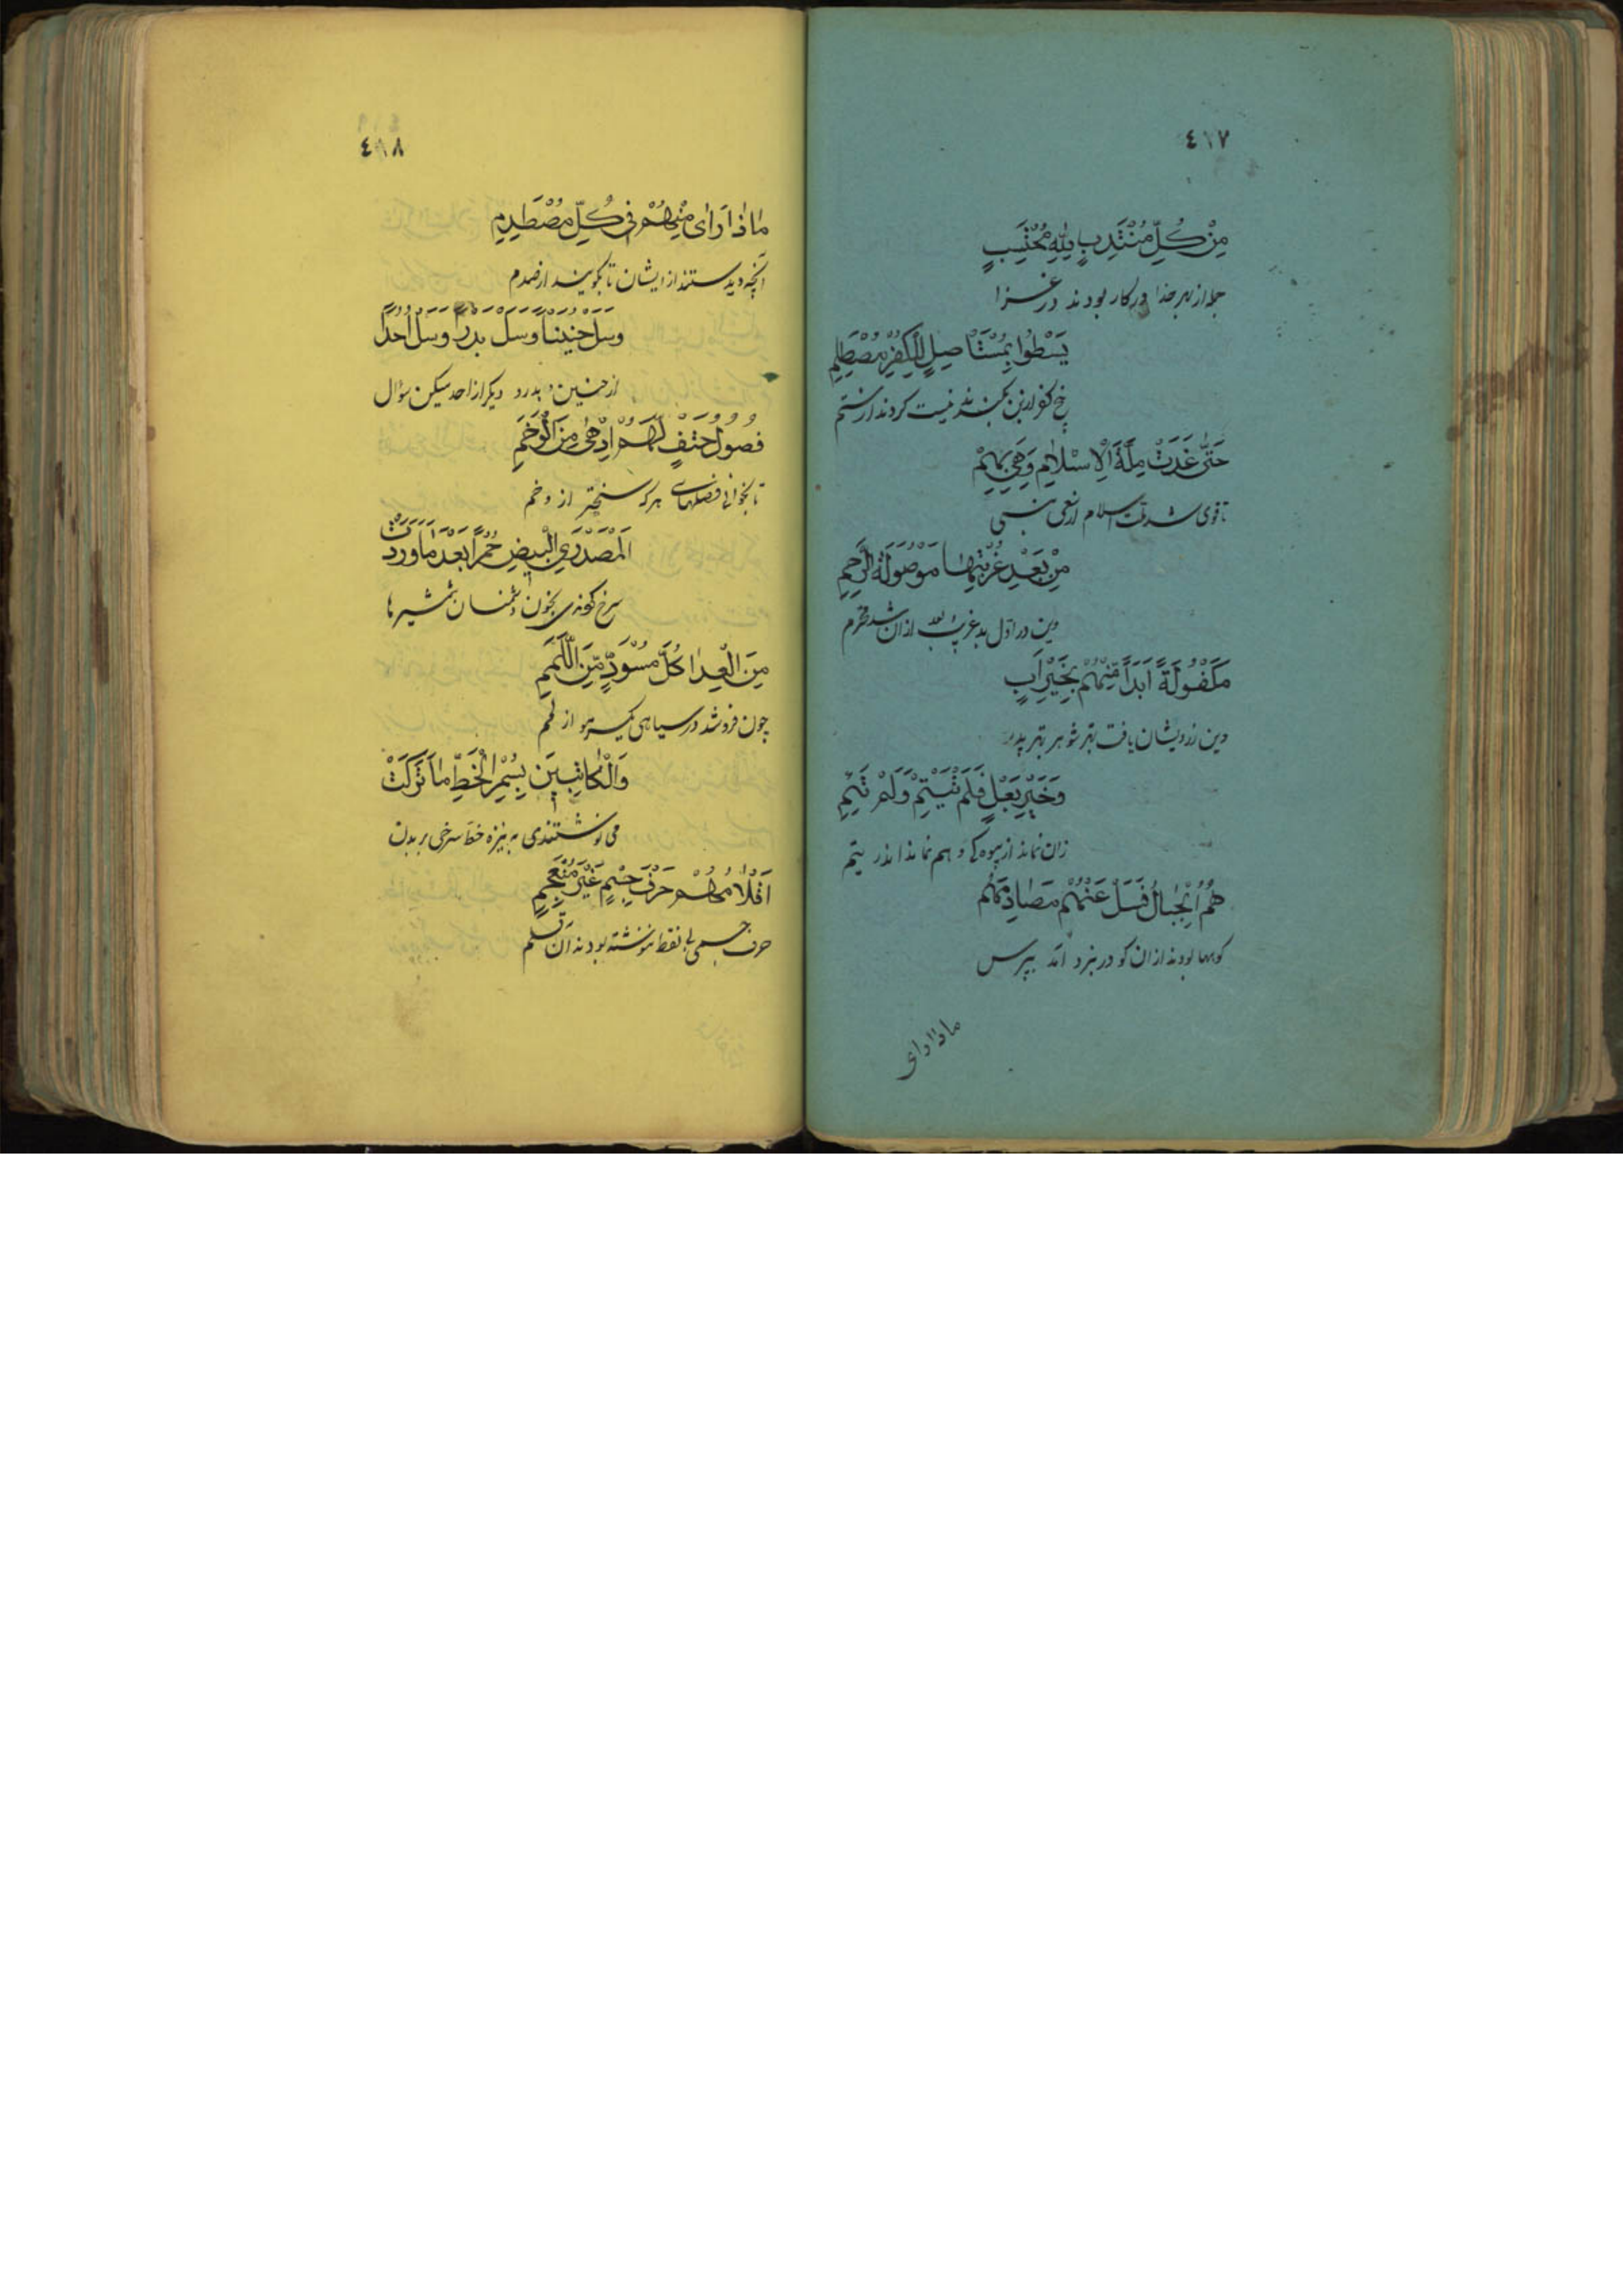 ٤١٧
مِنْ كُلِّ مُنْتَدِبٍ لِلّٰهِ مُحْتَسِبٍ
جمله از بهر خدا در کار بودند در غزا
يَسْطُوا بِمُسْتَأْصِلٍ لِلْكُفْرِ مُصْطَلِمِ
بیخ کفر از بن بکندند نیست کردند از ستم
حَتّٰى غَدَتْ مِلَّةُ الْاِسْلَامِ وَهْيَ بِهِمْ
تا قوی شد ملت اسلام از سعی نبی
مِنْ بَعْدِ غُرْبَتِهَا مَوْصُولَةَ الرَّحِمِ
دین در اول بد غریب بعد از آن شد محترم
مَكْفُولَةً اَبَدًا مِنْهُمْ بِخَيْرِ اَبٍ
دین زرویشان یافت بهتر شوهر بهتر پدر
وَخَيْرِ بَعْلٍ فَلَمْ تَيْتَمْ وَلَمْ تَئِمِ
زان نماند از بیوه کی و هم نماند اندر یتم
هُمُ الْجِبَالُ فَسَلْ عَنْهُمْ مَصَادِمَهُمْ
کوهها بودند از ان کو در نبرد آمد بپرس
ماذا رای
٤١٨
مَاذَا رَاٰى مِنْهُمْ فِى كُلِّ مُصْطَدِمِ
آنچه دیدستند از ایشان تا بگویند از صدم
وَسَلْ حُنَيْنًا وَسَلْ بَدْرًا وَسَلْ اُحُدًا
از حنین و بدر و دیگر از احد میکن سؤال
فُصُولُ حَتْفٍ لَهُمْ اَدْهٰى مِنَ الْوَخَمِ
تا بخوانی فصلهای مرگ سختتر از وخم
اَلْمُصْدِرِي الْبِيضِ حُمْرًا بَعْدَ مَا وَرَدَتْ
سرخ کردندی بخون دشمنان شمشیرها
مِنَ الْعِدَا كُلَّ مُسْوَدٍّ مِنَ اللِّمَمِ
چون فرو شد در سیاهی از لمم
وَالْكَاتِبِينَ بِسُمْرِ الْخَطِّ مَا تَرَكَتْ
می نوشتندی به نیزه خط سرخی بر بدن
اَقْلَامُهُمْ حَرْفَ جِسْمٍ غَيْرَ مُنْعَجِمِ
حرف جسمی بی نقط ننوشته بودند آن قلم